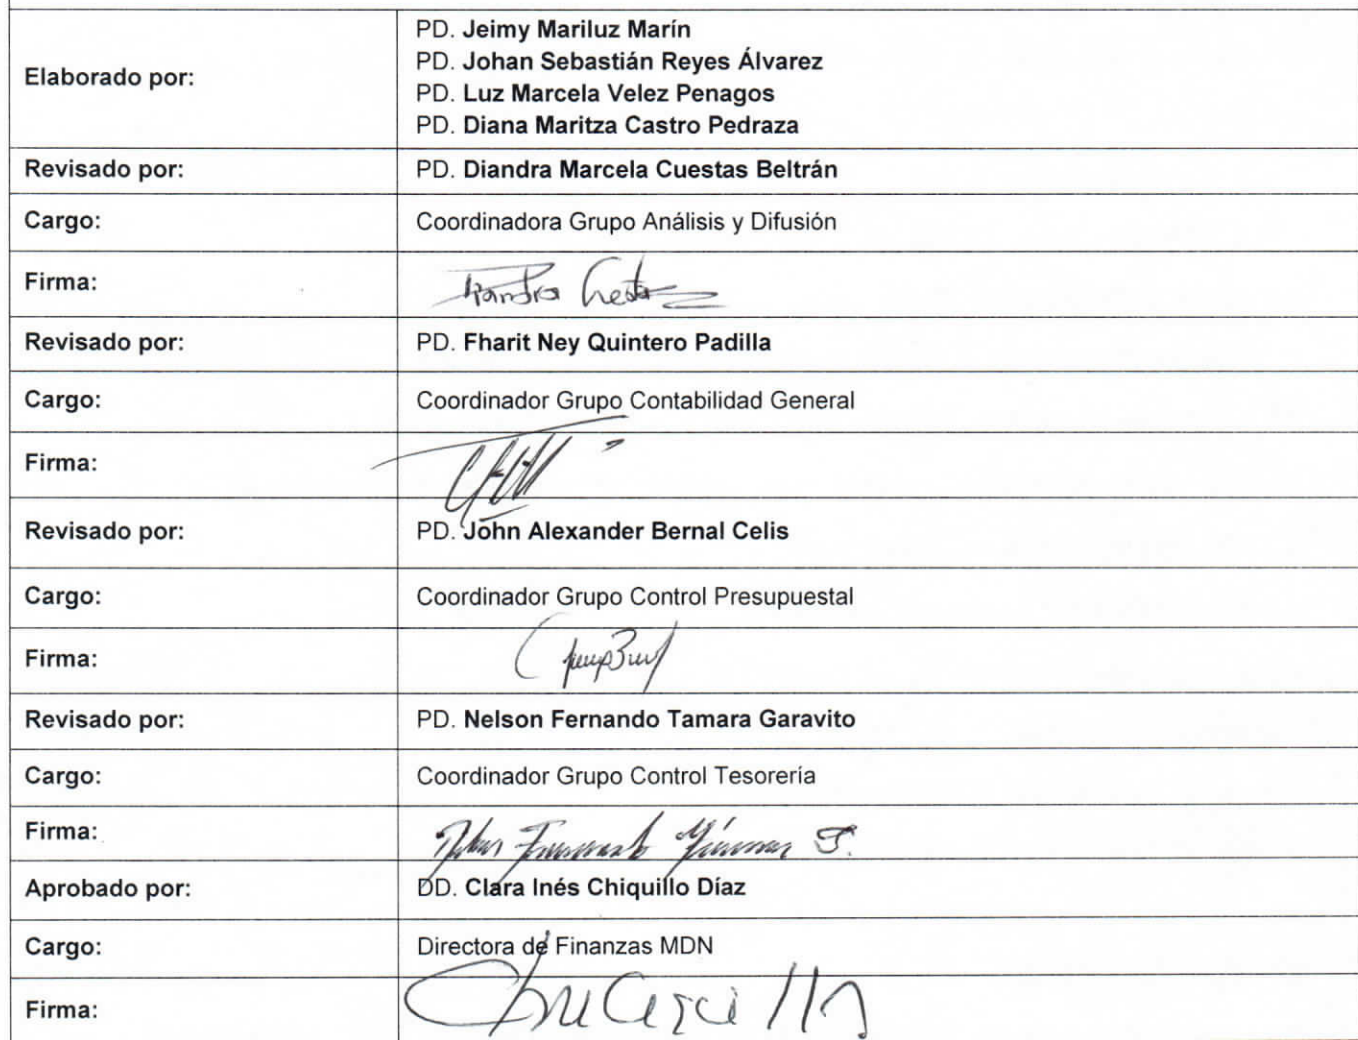 Elaborado por:
PD. Jeimy Mariluz Marín
PD. Johan Sebastián Reyes Álvarez
PD. Luz Marcela Velez Penagos
PD. Diana Maritza Castro Pedraza
Revisado por: PD. Diandra Marcela Cuestas Beltrán
Cargo: Coordinadora Grupo Análisis y Difusión
Firma:
Revisado por: PD. Fharit Ney Quintero Padilla
Cargo: Coordinador Grupo Contabilidad General
Firma:
Revisado por: PD. John Alexander Bernal Celis
Cargo: Coordinador Grupo Control Presupuestal
Firma:
Revisado por: PD. Nelson Fernando Tamara Garavito
Cargo: Coordinador Grupo Control Tesorería
Firma:
Aprobado por: DD. Clara Inés Chiquillo Díaz
Cargo: Directora de Finanzas MDN
Firma: